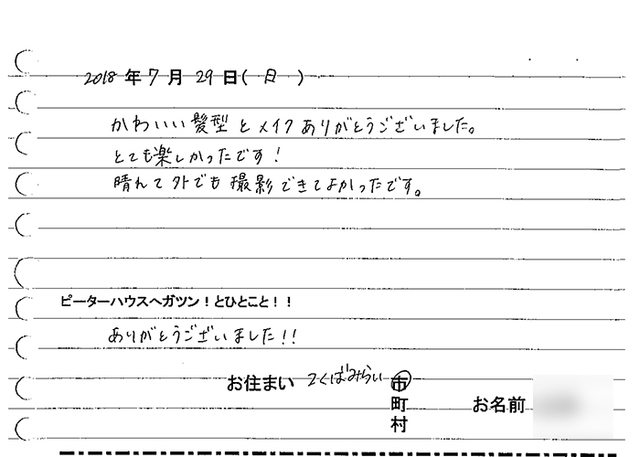 2018年7月29日(日)
かわいい髪型とメイクありがとうございました。
とても楽しかったです!
晴れて外でも撮影できてよかったです。
ピーターハウスへガツン!とひとこと!!
ありがとうございました!!
お住まい つくばみらい 市
町
村
お名前